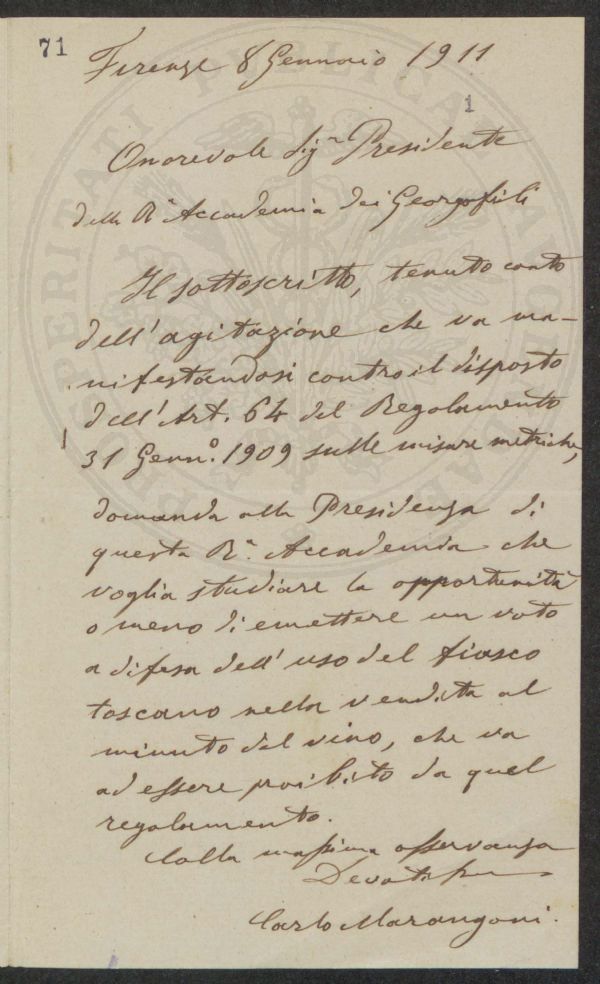 71
Firenze 8 Gennaio 1911
1
Onorevole Sigr Presidente
della Ra Accademia dei Georgofili
Il sottoscritto, tenuto conto
dell'agitazione che va ma-
nifestandosi contro il disposto
dell'Art. 64 del Regolamento
31 Genno. 1909 sulle misure metriche,
domanda alla Presidenza di
questa Ra. Accademia che
voglia studiare la opportunità
o meno di emettere un voto
a difesa dell'uso del fiasco
toscano nella vendita al
minuto del vino, che va
ad essere proibito da quel
regolamento.
Colla massima osservanza
Devotissimo
Carlo Marangoni.
PROSPERITATI PUBLICAE AUGENDAE